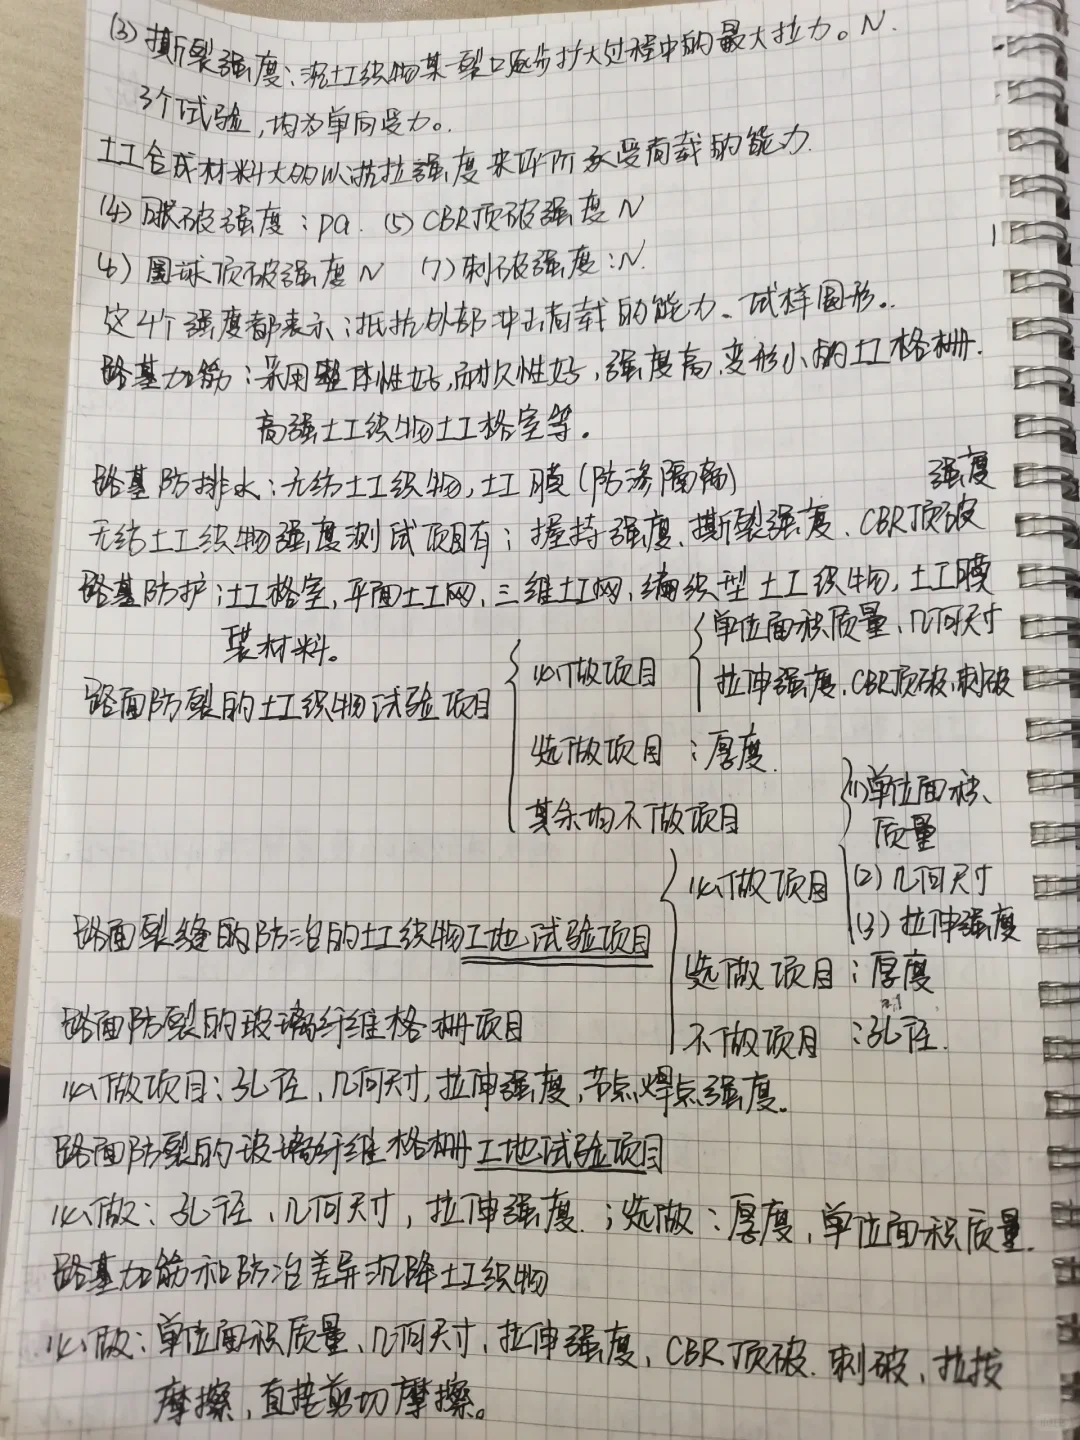 (3) 撕裂强度:沉土工织物某一裂口逐步扩大过程中的最大拉力。N.
3个试验,均为单向受力。
土工合成材料大的以抗拉强度来评阶承受荷载的能力.
(4) 胀破强度:pa. (5) CBR顶破强度 N
(6) 圆球顶破强度 N (7) 刺破强度:N.
这4个强度都表示:抵抗外部冲击荷载的能力、试样圆形.
路基加筋:采用整体性好,耐久性好,强度高,变形小的土工格栅.
高强土工织物土工格室等.
路基防排水:无纺土工织物,土工膜(防渗隔离)
无纺土工织物强度测试项目有:握持强度、撕裂强度、CBR顶破强度
路基防护:土工格室,平面土工网、三维土工网、编织型土工织物,土工膜
装材料。
路面防裂的土工织物试验项目
必做项目
单位面积质量、几何尺寸
拉伸强度、CBR顶破、刺破
选做项目:厚度.
其余均不做项目
路面裂缝的防治的土工织物工地试验项目
必做项目
(1)单位面积、质量
(2) 几何尺寸
(3) 拉伸强度
选做项目:厚度
不做项目:孔径.
路面防裂的玻璃纤维格栅项目
必做项目:孔径,几何尺寸,拉伸强度,节点焊点强度。
路面防裂的玻璃纤维格栅工地试验项目
必做:孔径、几何尺寸,拉伸强度.;选做:厚度,单位面积质量.
路基加筋和防治差异沉降土工织物
必做:单位面积质量、几何尺寸,拉伸强度、CBR顶破.刺破,拉拔
摩擦,直接剪切摩擦。